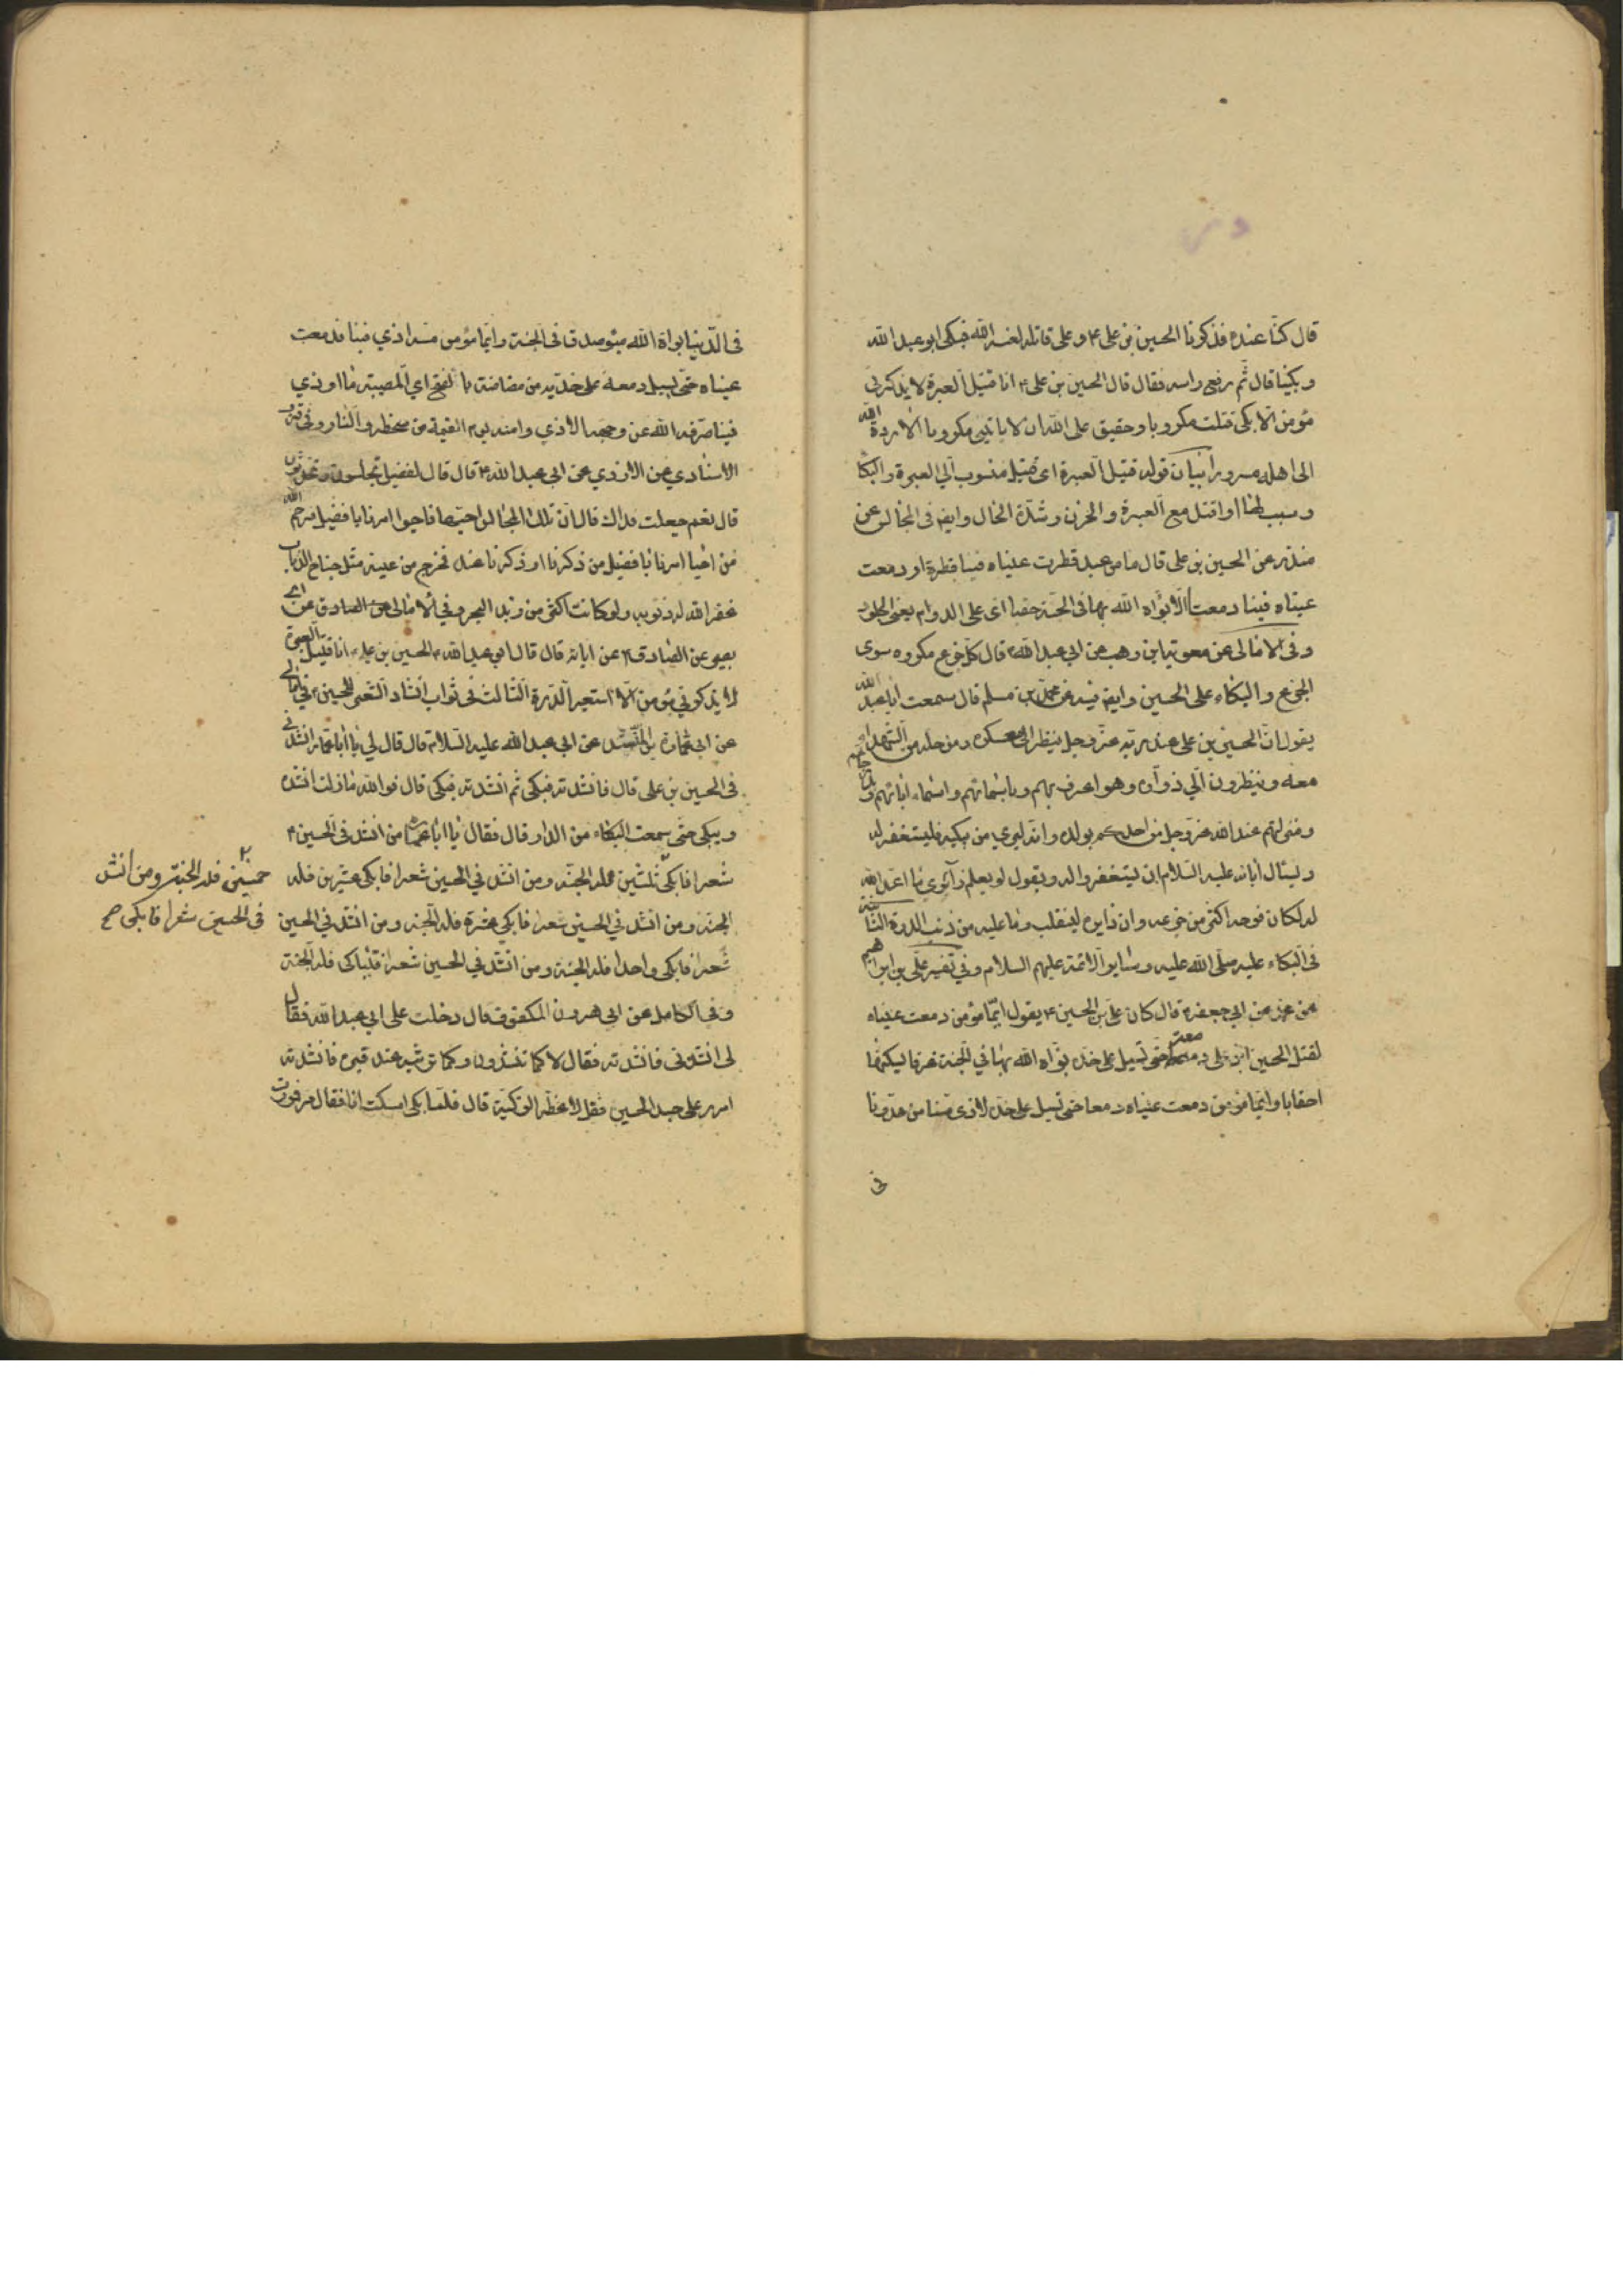 قال كنّا عنده فذكرنا الحسين بن علی ۴ و علی قاتله لعنه الله فبكی ابو عبد الله
و بكينا قال ثم رفع راسه فقال قال الحسين بن علی ۴ انا قتيل العبرة لا يذكرنی
مؤمن الا بكی قتلت مكروبا و حقيق علی الله ان لا ياتينی مكروبا الا رده الله
الی اهله مسرورا بيان قوله قتيل العبرة ای قتيل منسوب الی العبرة و البكا
و سبب لها او اقتل مع العبرة و الحزن و شدّة الحال و ايضا فی المجالس عن
منذر عن الحسين بن علی قال ما من عبد قطرت عيناه فينا قطرة او دمعت
عيناه فينا دمعت الا بوّاه الله بها فی الجنة حقبا ای علی الدوام يعنی الخلود
و فی الامالی عن معوية ابن وهب عن ابی عبد الله قال كل جزع مكروه سوی
الجزع و البكاء علی الحسين و ايضا فيه عن محمد بن مسلم قال سمعت ابا عبد الله
يقول ان الحسين بن علی عند ربه عزّ و جل ينظر الی معسكره و من حله من الشهداء
معه و ينظر الی زواره و هو اعرف بهم و باسمائهم و اسماء ابائهم و
و منزلتهم عند الله عزّ و جل من احدكم بولده و انه ليری من يبكيه فليستغفر له
و يسئال ابائه عليه السلام ان يستغفروا له و يقول لو يعلم زائری ما اعد الله
له لكان فرحه اكثر من جزعه و ان زايره لينقلب و ما عليه من ذنب الدرة الثانية
فی البكاء عليه صلی الله عليه و ساير الائمة عليهم السلام و فی تفسير علی بن ابراهيم
عن ابی جعفر قال كان علی بن الحسين ۴ يقول ايّما مؤمن دمعت عيناه
لقتل الحسين ابن علی دمعة حتی تسيل علی خده بوّاه الله بها فی الجنة غرفا يسكنها
احقابا و ايّما مؤمن دمعت عيناه دمعا حتی تسيل علی خده لاذی مسنا من عدونا
فی
فی الدنيا بواه الله مبوء صدق فی الجنة و ايما مؤمن مسه اذی فينا فدمعت
عيناه حتی يسيل دمعه علی خديه من مضاضة ما اوذی
فينا صرف الله عن وجهه الاذی و امنه يوم القيمة من سخطه و النار و فی قرب
الاسنادی عن الازدی عن ابی عبد الله ۴ قال قال لفضيل تجلسون و تحدثون
قال نعم جعلت فداك قال ان تلك المجالس احبها فاحيوا امرنا يا فضيل فرحم الله
من احيا امرنا يا فضيل من ذكرنا او ذكرنا عنده فخرج من عينه مثل جناح الذباب
غفر الله له ذنوبه و لو كانت اكثر من زبد البحر و فی الامالی عن الصادق عن ابی
بصير عن الصادق ۴ عن ابائه قال قال ابی عبد الله الحسين بن علی انا قتيل العبرة
لا يذكرنی مؤمن الا استعبر الدرة الثالث فی ثواب انشاد الشعر للحسين ۴ فی امالی
عن ابی عمارة المنشد عن ابی عبد الله عليه السلام قال قال لی يا ابا عمار انشدنی
فی الحسين بن علی قال فانشدته فبكی ثم انشدته فبكی قال فو الله ما زلت انشده
و يبكی حتی سمعت البكاء من الدار قال فقال يا ابا عمار من انشد فی الحسين ۴
شعرا فابكی ثلثين فله الجنة و من انشد فی الحسين شعرا فابكی عشرين فله
الجنة و من انشد فی الحسين شعرا فابكی عشرة فله الجنة و من انشد فی الحسين
شعرا فابكی واحدا فله الجنة و من انشد فی الحسين شعرا فتباكی فله الجنة
و فی الكامل عن ابی هرون المكفوف قال دخلت علی ابی عبد الله فقال
لی انشدنی فانشدته فقال لا كما تنشدون و كما ترثيه عند قبره فانشدته
امرر علی جدث الحسين فقل لاعظمه الزكية قال فلما بكی امسكت انا فقال مر فمررت
خمسين فله الجنة و من انشد
فی الحسين شعرا فابكی صح